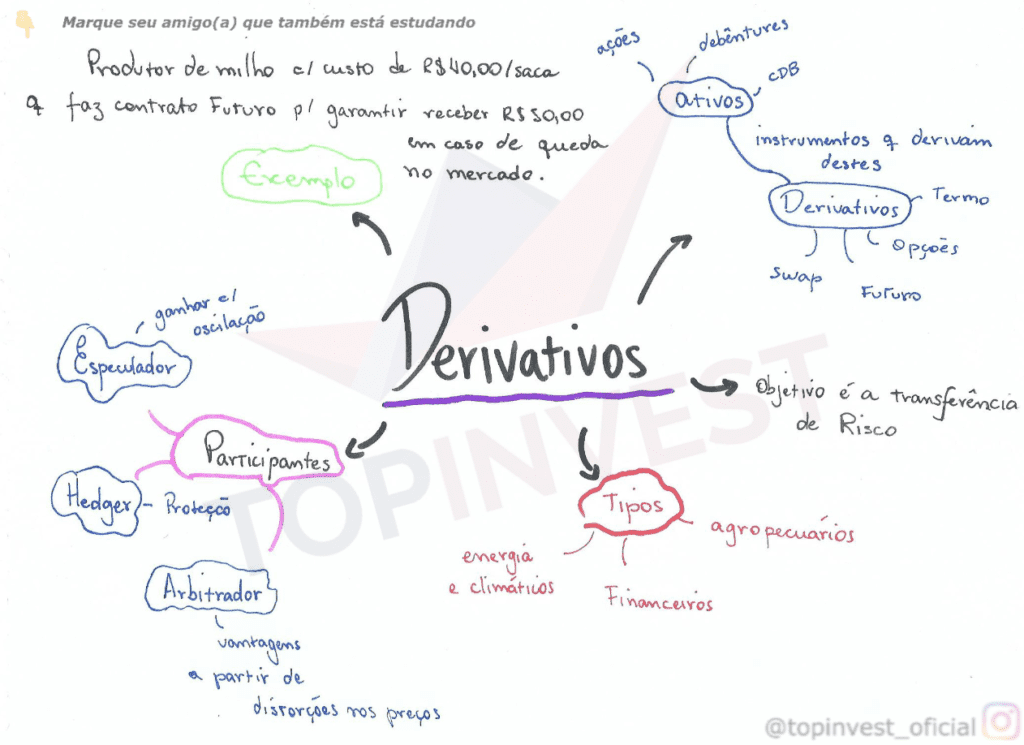 Marque seu amigo(a) que também está estudando
Produtor de milho c/ custo de R$40,00/saca
q faz contrato Futuro p/ garantir receber R$50,00
em caso de queda
no mercado.
Exemplo
ações
debêntures
CDB
ativos
instrumentos q derivam
destes
Derivativos
Termo
Opções
Swap
Futuro
Derivativos
Objetivo é a transferência
de Risco
ganhar c/
oscilação
Especulador
Participantes
Hedger - Proteção
Arbitrador
vantagens
a partir de
distorções nos preços
Tipos
agropecuários
energia
e climáticos
Financeiros
TOPINVEST
@topinvest_oficial